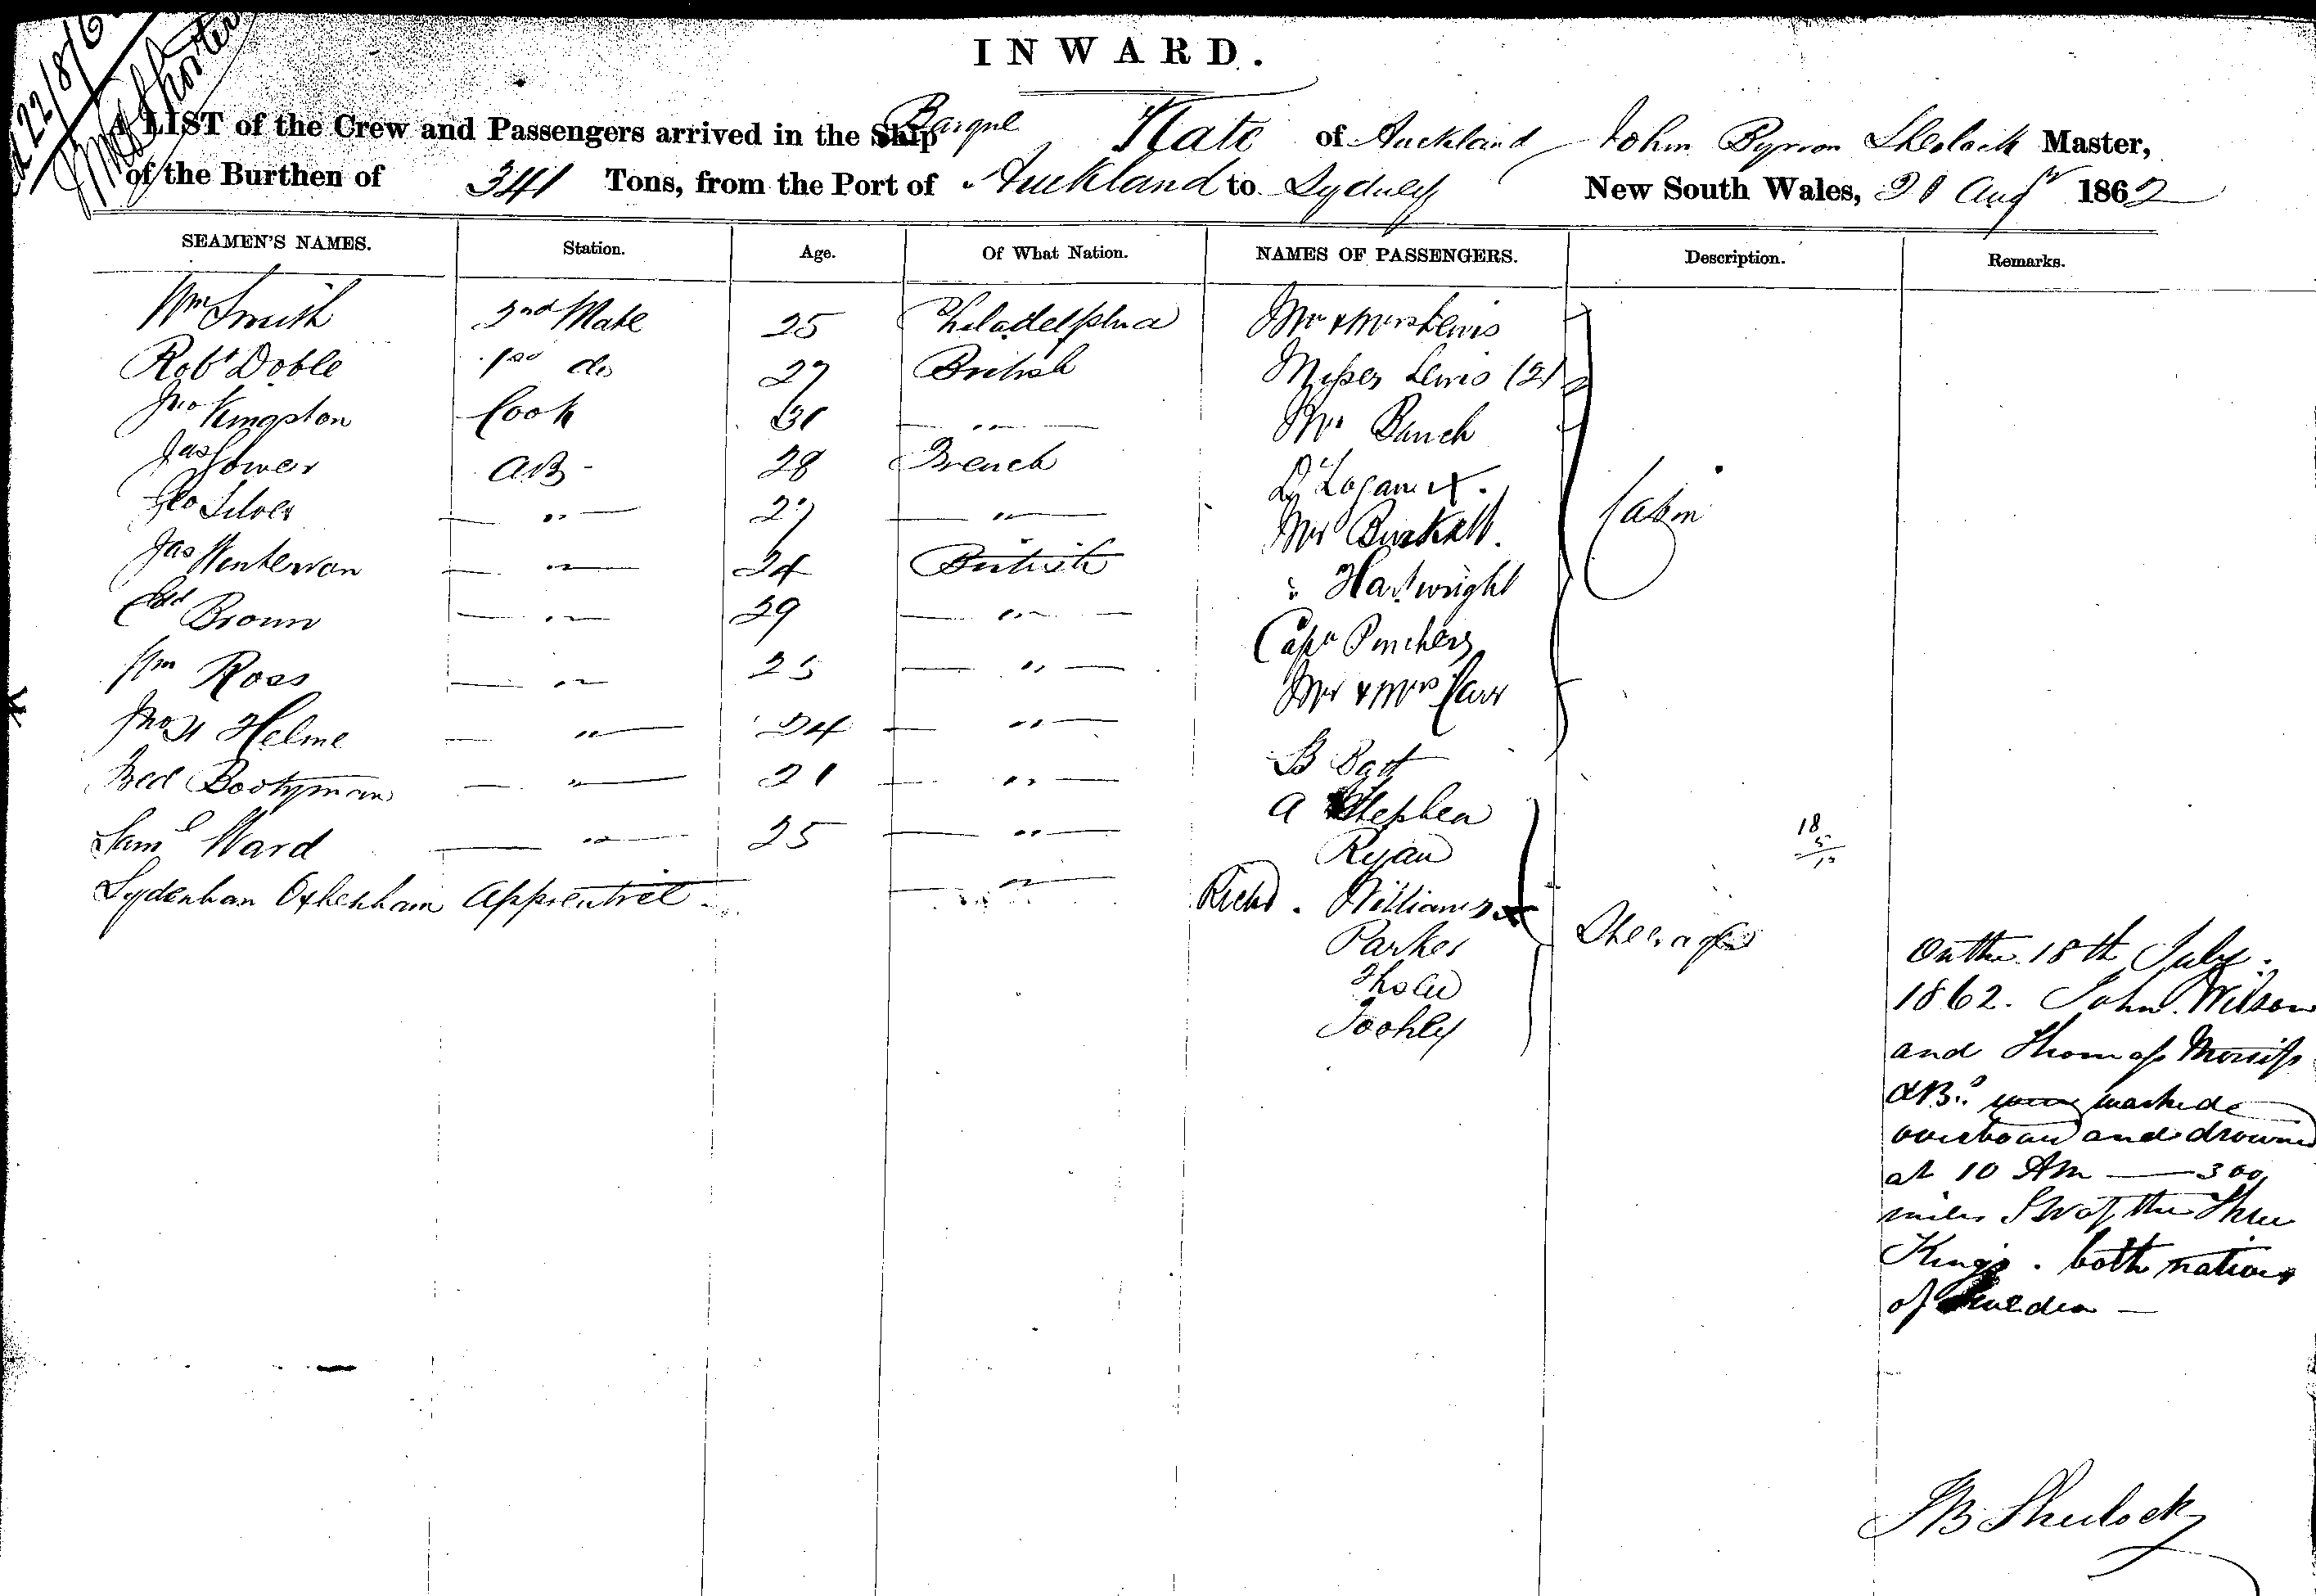 22/8/6
INWARD.
A LIST of the Crew and Passengers arrived in the Ship Barque Kate of Auckland John Byron Sherlock Master,
of the Burthen of 341 Tons, from the Port of Auckland to Sydney New South Wales, 21 Augt 1862
SEAMEN'S NAMES. Station. Age. Of What Nation. NAMES OF PASSENGERS. Description. Remarks.
Wm Smith 2nd Mate 25 Philadelphia Mr & Mrs Lewis
Robt Doble 1st do 27 British Misses Lewis (2)
Jno Kingston Cook 31 — " — Mr Bunch
Jas AB - 28 French Dr Logan X.
Geo Silver — " — 27 — " — Mr Cabin
Jas — " — 24 British " Hartwright
Edd Brown — " — 29 — " — Capn
Wm Ross — " — 25 — " — Mr & Mrs Carr
Helme — " — 24 — " — B
Fred Bootyman — " — 21 — " — A Stephen
Saml Ward — " — 25 — " — Ryan
Sydenham Oxhenham Apprentice — " — Richd. Williams X
Parker Steerage
Toohey
18
5
13
On the 18th July.
1862. John Wilson
and Thomass
ABs were washed
overboard and drowned
at 10 AM — 300
miles SW of the Three
Kings. both natives
of Sweden —
JB Sherlock